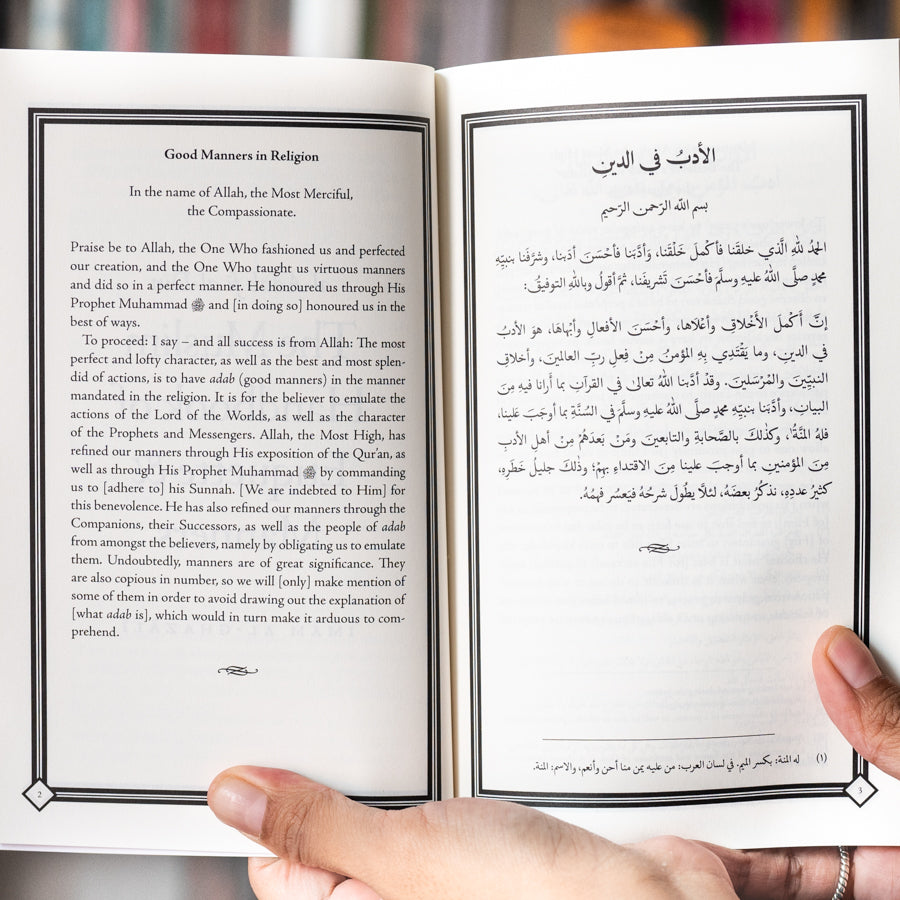 Good Manners in Religion
In the name of Allah, the Most Merciful,
the Compassionate.
Praise be to Allah, the One Who fashioned us and perfected
our creation, and the One Who taught us virtuous manners
and did so in a perfect manner. He honoured us through His
Prophet Muhammad ﷺ and [in doing so] honoured us in the
best of ways.
To proceed: I say – and all success is from Allah: The most
perfect and lofty character, as well as the best and most splen-
did of actions, is to have adab (good manners) in the manner
mandated in the religion. It is for the believer to emulate the
actions of the Lord of the Worlds, as well as the character
of the Prophets and Messengers. Allah, the Most High, has
refined our manners through His exposition of the Qur'an, as
well as through His Prophet Muhammad ﷺ by commanding
us to [adhere to] his Sunnah. [We are indebted to Him] for
this benevolence. He has also refined our manners through the
Companions, their Successors, as well as the people of adab
from amongst the believers, namely by obligating us to emulate
them. Undoubtedly, manners are of great significance. They
are also copious in number, so we will [only] make mention of
some of them in order to avoid drawing out the explanation of
[what adab is], which would in turn make it arduous to com-
prehend.
2
الأدبُ في الدينِ
بسم الله الرّحمن الرّحيم
الحمدُ للهِ الَّذي خلقَنا فأكْملَ خَلْقَنا، وَأدَّبَنا فأحْسَنَ أدَبنا، وشرَّفَنا بنبيِّهِ
محمدٍ صلَّى اللهُ عليهِ وسلَّمَ فأحْسَنَ تَشريفَنا، ثمَّ أقولُ وباللهِ التوفيقُ:
إنَّ أكْملَ الأَخْلاقِ وأعْلاها، وأحْسَنَ الأفعالِ وأبْهاهَا، هوَ الأدبُ
في الدينِ، وما يَقْتَدِي بهِ المؤمنُ مِنْ فِعلِ ربِّ العالمينَ، وأخلاقِ
النبيِّينَ والمُرْسَلينَ. وقدْ أدَّبنا اللهُ تعالى في القرآنِ بما أَرانا فيهِ مِنَ
البيانِ، وأدَّبَنا بنبيِّهِ محمدٍ صلَّى اللهُ عليهِ وسلَّمَ في السُنَّةِ بما أوجَبَ علينا،
فلهُ المنَّةُ١، وكذلكَ بالصَّحابةِ والتابعينَ ومَنْ بَعدَهُمْ مِنْ أهلِ الأدبِ
مِنَ المؤمنينِ بما أوجبَ علينا مِنَ الاقتداءِ بهِمْ؛ وذلكَ جليلُ خَطَرِهِ،
كثيرُ عددِهِ، نذكُرُ بعضَهُ، لئلاَّ يطُولَ شرحُهُ فيَعسُر فهمُهُ.
(١) له المنة: بكسر الميم. في لسان العرب: من عليه يمن منا أحسن وأنعم، والاسم: المنة.
3